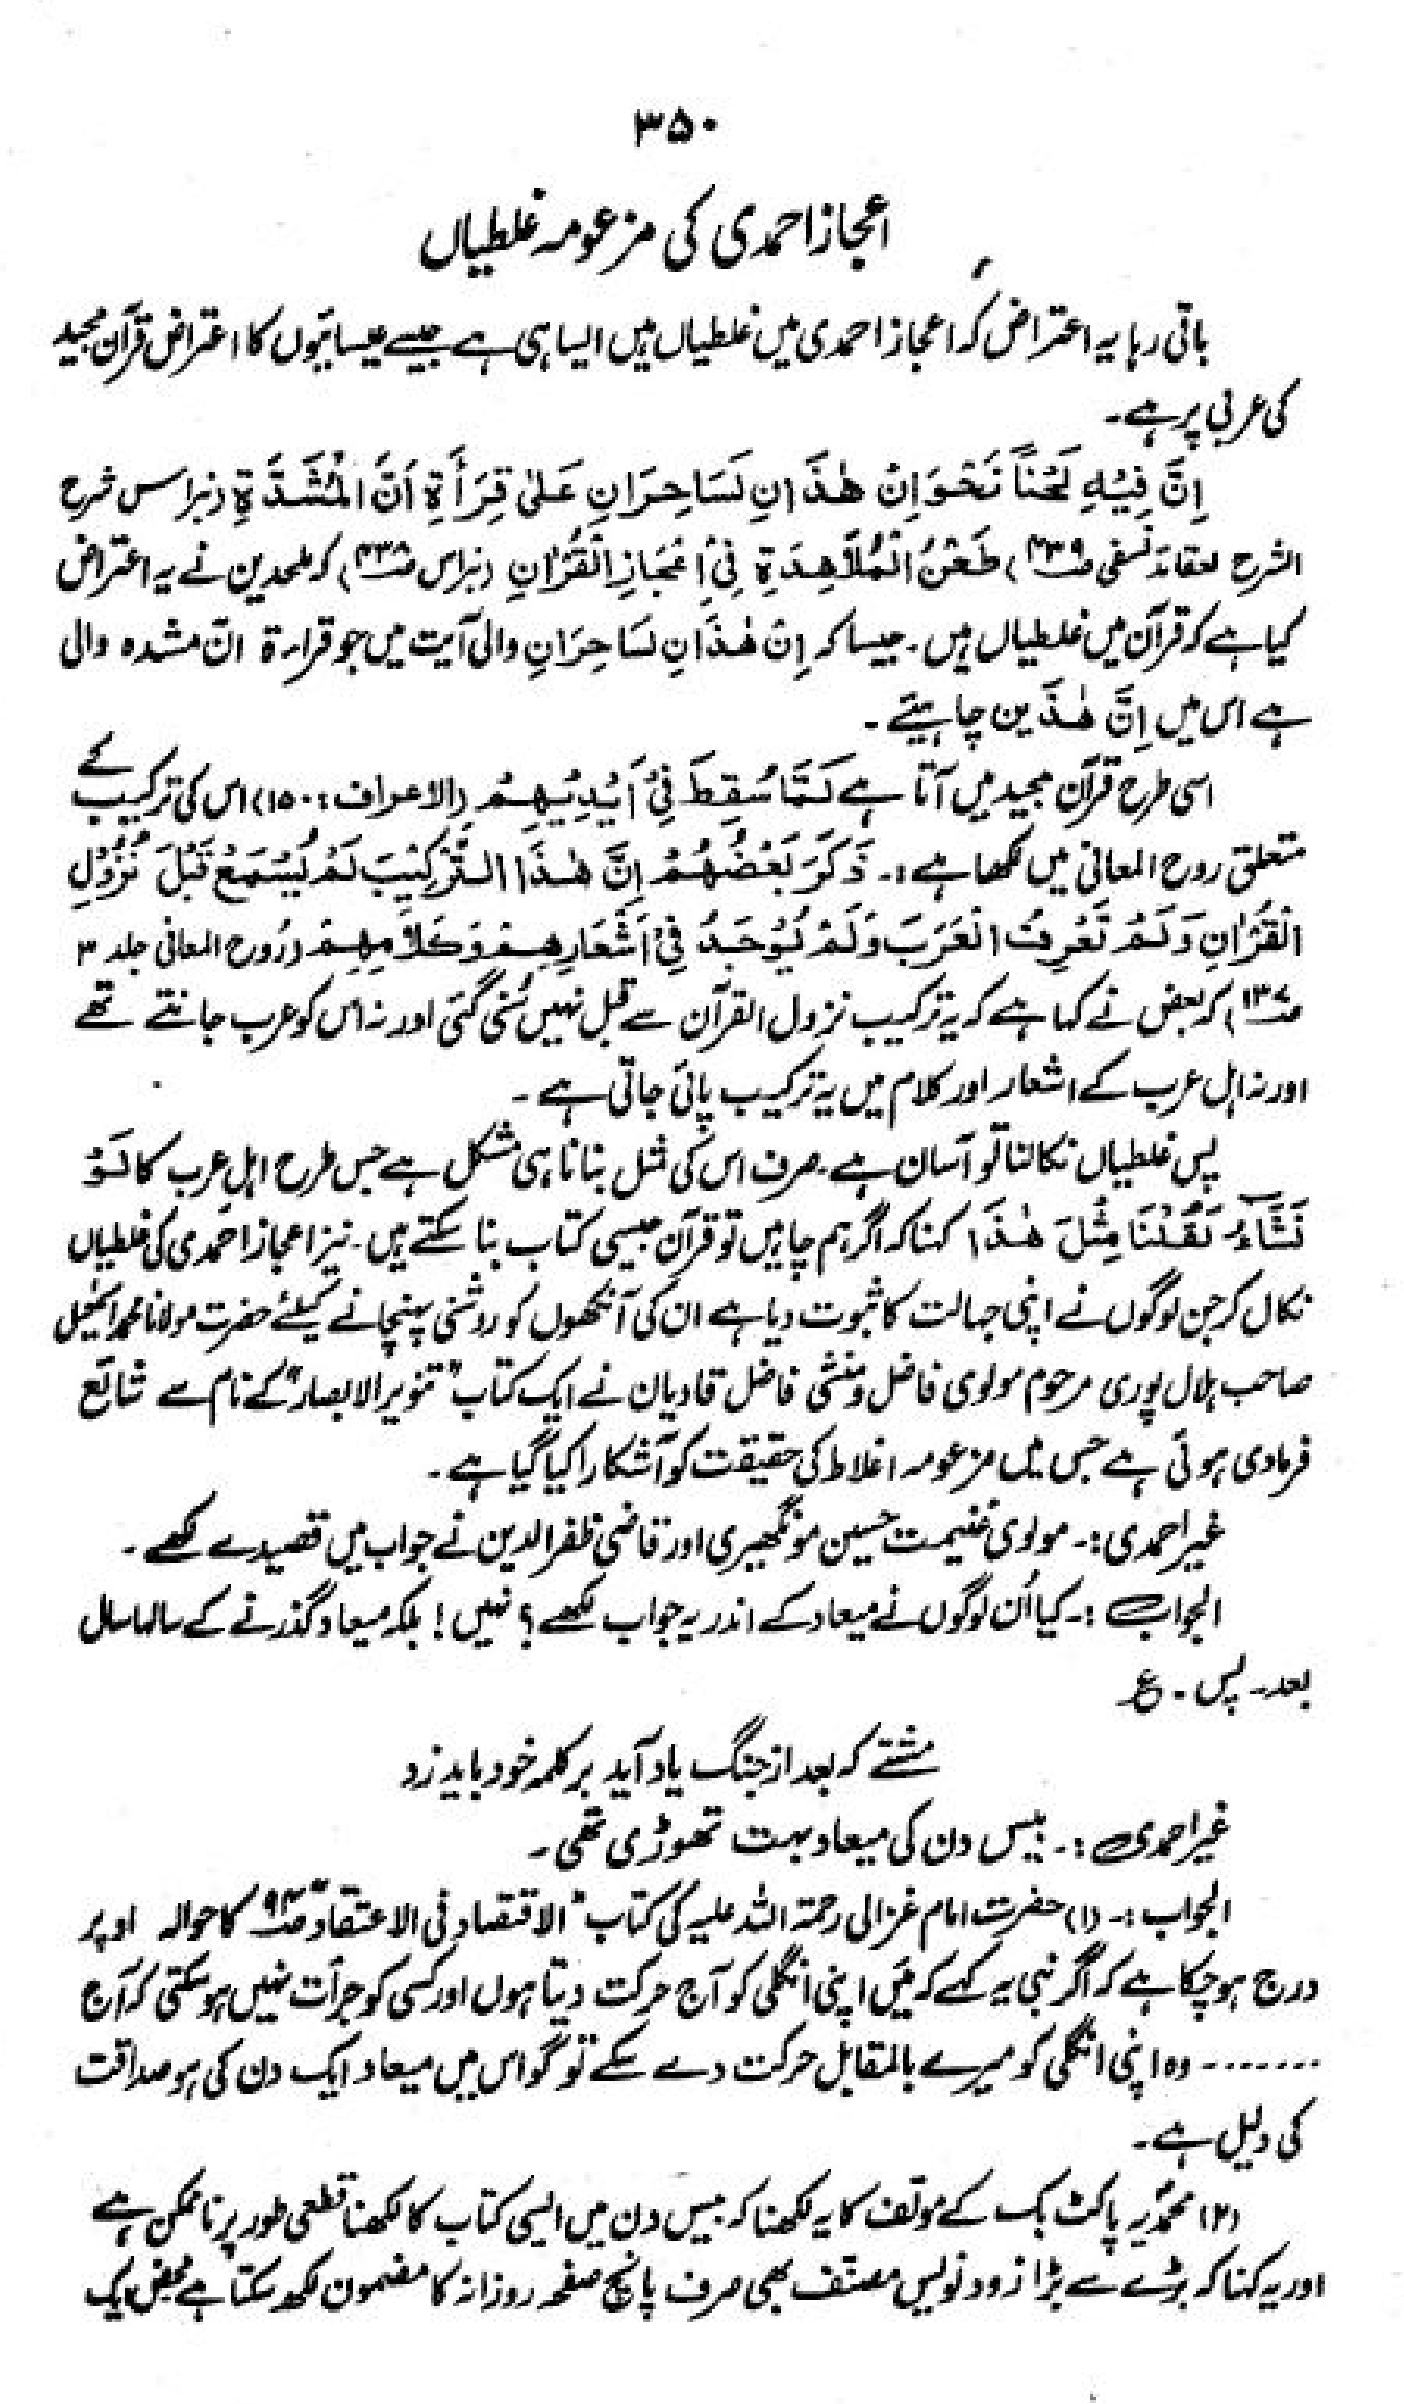 ۳۵۰
اعجاز احمدی کی مزعومہ غلطیاں
باقی رہا یہ اعتراض کہ اعجاز احمدی میں غلطیاں ہیں ایسا ہی ہے جیسے عیسائیوں کا اعتراض قرآن مجید
کی عربی پر ہے۔
اِنَّ فِیْہِ لَحْنًا نَحْوَ اِنْ ھٰذَانِ لَسَاحِرَانِ عَلٰی قِرَأَۃِ اَنَّ الْمُشَدَّدَۃِ (نبراس شرح
الشرح لعقائد نسفی ص۴۳۹) طَعْنُ الْمُلَاھِدَۃِ فِیْ اِعْجَازِ الْقُرْاٰنِ (نبراس ص۴۳۸) کہ ملحدین نے یہ اعتراض
کیا ہے کہ قرآن میں غلطیاں ہیں۔ جیسا کہ اِنْ ھٰذَانِ لسَاحِرَانِ والی آیت میں جو قراءۃ انّ مشددہ والی
ہے اس میں اِنَّ ھٰذَین چاہیئے۔
اسی طرح قرآن مجید میں آتا ہے لَمَّا سُقِطَ فِیْ اَیْدِیْہِمْ (الاعراف : ۱۵۰) اس کی ترکیب کے
متعلق روح المعانی میں لکھا ہے :۔ ذَکَرَ بَعْضُھُمْ اِنَّ ھٰذَا التَّرْکِیْبَ لَمْ یُسْمَعْ قَبْلَ نُزُوْلِ
الْقُرْاٰنِ وَلَمْ تَعْرِفُ الْعَرَبَ وَلَمْ یُوْجَدُ فِیْ اَشْعَارِھِمْ وَکَلَامِھِمْ (رُوح المعانی جلد ۳
ص۱۳۷) کہ بعض نے کہا ہے کہ یہ ترکیب نزول القرآن سے قبل نہیں سُنی گئی اور نہ اُس کو عرب جانتے تھے
اور نہ اہل عرب کے اشعار اور کلام میں یہ ترکیب پائی جاتی ہے۔
پس غلطیاں نکالنا تو آسان ہے۔ صرف اس کی مثل بنانا ہی مشکل ہے جس طرح اہلِ عرب کا لَوْ
نَشَآءُ لَقُلْنَا مِثْلَ ھٰذَا کہنا کہ اگر ہم چاہیں تو قرآن جیسی کتاب بنا سکتے ہیں۔ نیز اعجاز احمدی کی غلطیاں
نکال کر جن لوگوں نے اپنی جہالت کا ثبوت دیا ہے ان کی آنکھوں کو روشنی پہنچانے کیلئے حضرت مولانا محمد اسمٰعیل
صاحب ہلال پوری مرحوم مولوی فاضل و منشی فاضل قادیان نے ایک کتاب "تنویر الابصار" کے نام سے شائع
فرمادی ہوئی ہے جس میں مزعومہ اغلاط کی حقیقت کو آشکارا کیا گیا ہے۔
غیر احمدی :۔ مولوی غنیمت حسین مونگھیری اور قاضی ظفر الدین نے جواب میں قصیدے لکھے۔
الجواب :۔ کیا اُن لوگوں نے میعاد کے اندر یہ جواب لکھے؟ نہیں! بلکہ میعاد گذرنے کے سالہا سال
بعد۔ پس۔ ع
مشتے کہ بعد از جنگ یاد آید بر کلمہ خود باید زد
غیر احمدی :۔ بیس دن کی میعاد بہت تھوڑی تھی۔
الجواب :۔ (۱) حضرت امام غزالی رحمۃ اللہ علیہ کی کتاب "الاقتصاد فی الاعتقاد" ص۹۴ کا حوالہ اوپر
درج ہو چکا ہے کہ اگر نبی یہ کہے کہ مَیں اپنی انگلی کو آج حرکت دیتا ہوں اور کسی کو جرأت نہیں ہو سکتی کہ آج
....... وہ اپنی انگلی کو میرے بالمقابل حرکت دے سکے تو گو اس میں میعاد ایک دن کی ہو صداقت
کی دلیل ہے۔
(۲) محمّدیہ پاکٹ بک کے مؤلف کا یہ لکھنا کہ بیس دن میں ایسی کتاب کا لکھنا قطعی طور پر ناممکن ہے
اور یہ کہنا کہ بڑے سے بڑا زود نویس مصنّف بھی صرف پانچ صفحہ روزانہ کا مضمون لکھ سکتا ہے محض ایک